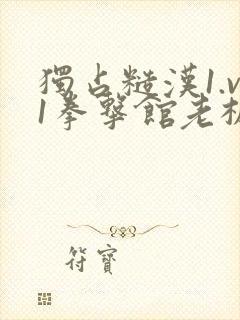 獨占糙漢1.v
1拳擊館老板
符寶